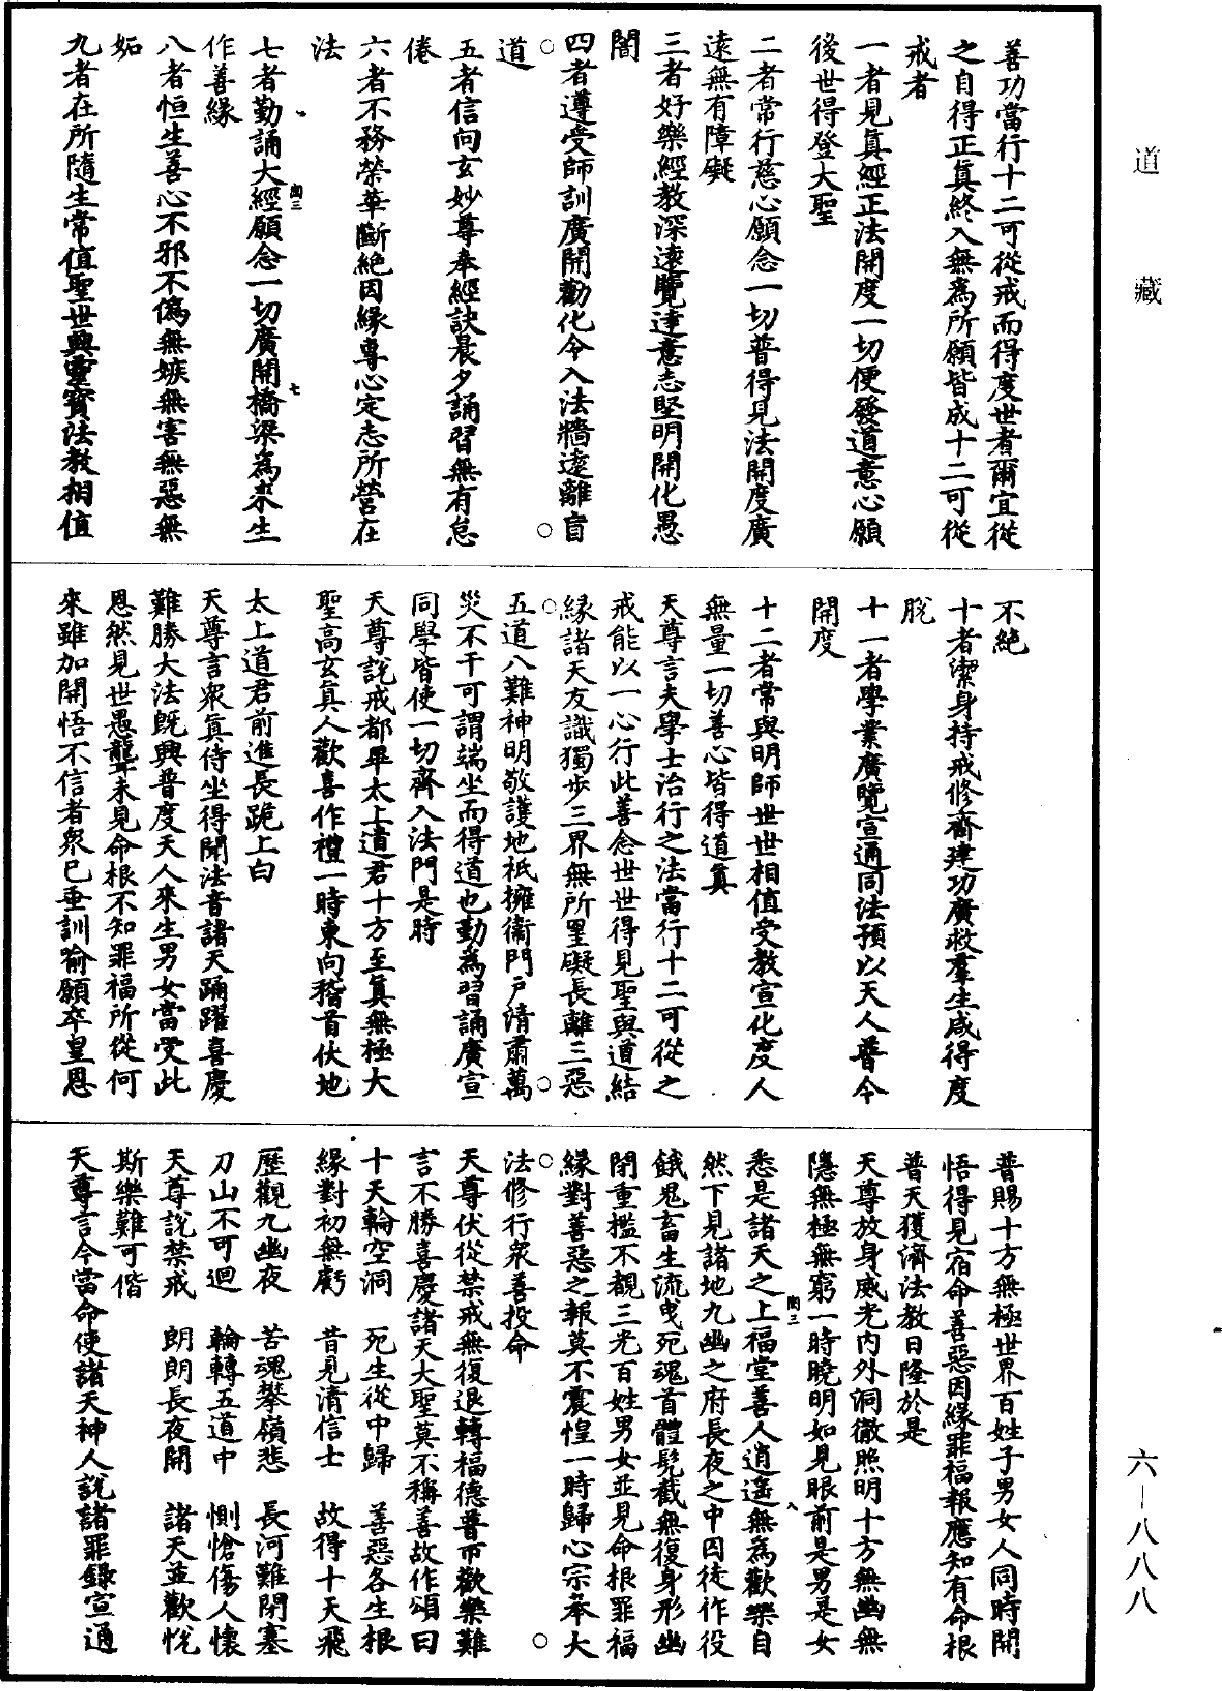 道藏
善功當行十二可從戒而得度世者爾宜從
之自得正真終入無為所願皆成十二可從
戒者
一者見真經正法開度一切便發道意心願
後世得登大聖
二者常行慈心願念一切普得見法開度廣
遠無有障礙
三者好樂經教深遠覽達意志堅明開化愚
闇
四者遵受師訓廣開勸化令入法牆遠離盲
道
五者信向玄妙尊奉經訣晨夕誦習無有怠
倦
六者不務榮華斷絕因緣專心定志所營在
法
七者勤誦大經願念一切廣開橋梁為來生
作善緣
八者恒生善心不邪不偽無嫉無害無惡無
妬
九者在所隨生常值聖世與靈寶法教相值
不絕
十者潔身持戒修齋建功廣救羣生咸得度
脫
十一者學業廣覽宣通同法預以天人普令
開度
十二者常與明師世世相值受教宣化度人
無量一切善心皆得道真
天尊言夫學士治行之法當行十二可從之
戒能以一心行此善念世世得見聖與道結
緣諸天友識獨步三界無所罣礙長離三惡
五道八難神明敬護地祇擁衛門戶清肅萬
災不干可謂端坐而得道也勤為習誦廣宣
同學皆使一切齊入法門是時
天尊說戒都畢太上道君十方至真無極大
聖高玄真人歡喜作禮一時東向稽首伏地
太上道君前進長跪上白
天尊言眾真侍坐得聞法音諸天踊躍喜慶
難勝大法既興普度天人來生男女當受此
恩然見世愚聾未見命根不知罪福所從何
來雖加開悟不信者眾已垂訓喻願卒皇恩
普賜十方無極世界百姓子男女人同時開
悟得見宿命善惡因緣罪福報應知有命根
普天獲濟法教日隆於是
天尊放身威光內外洞徹照明十方無幽無
隱無極無窮一時曉明如見眼前是男是女
悉是諸天之上福堂善人逍遙無為歡樂自
然下見諸地九幽之府長夜之中囚徒作役
餓鬼畜生流曳死魂首體髡截無復身形幽
閉重檻不覩三光百姓男女並見命根罪福
緣對善惡之報莫不震惶一時歸心宗奉大
法修行眾善投命
天尊伏從禁戒無復退轉福德普帀歡樂難
言不勝喜慶諸天大聖莫不稱善故作頌曰
十天輪空洞　死生從中歸　善惡各生根
緣對初無虧　昔見清信士　故得十天飛
歷觀九幽夜　苦魂攀嶺悲　長河難閉塞
刀山不可迴　輪轉五道中　惻愴傷人懷
天尊說禁戒　朗朗長夜開　諸天並歡悅
斯樂難可偕
天尊言今當命使諸天神人說諸罪錄宣通
闕三
七
闕三
八
六—八八八